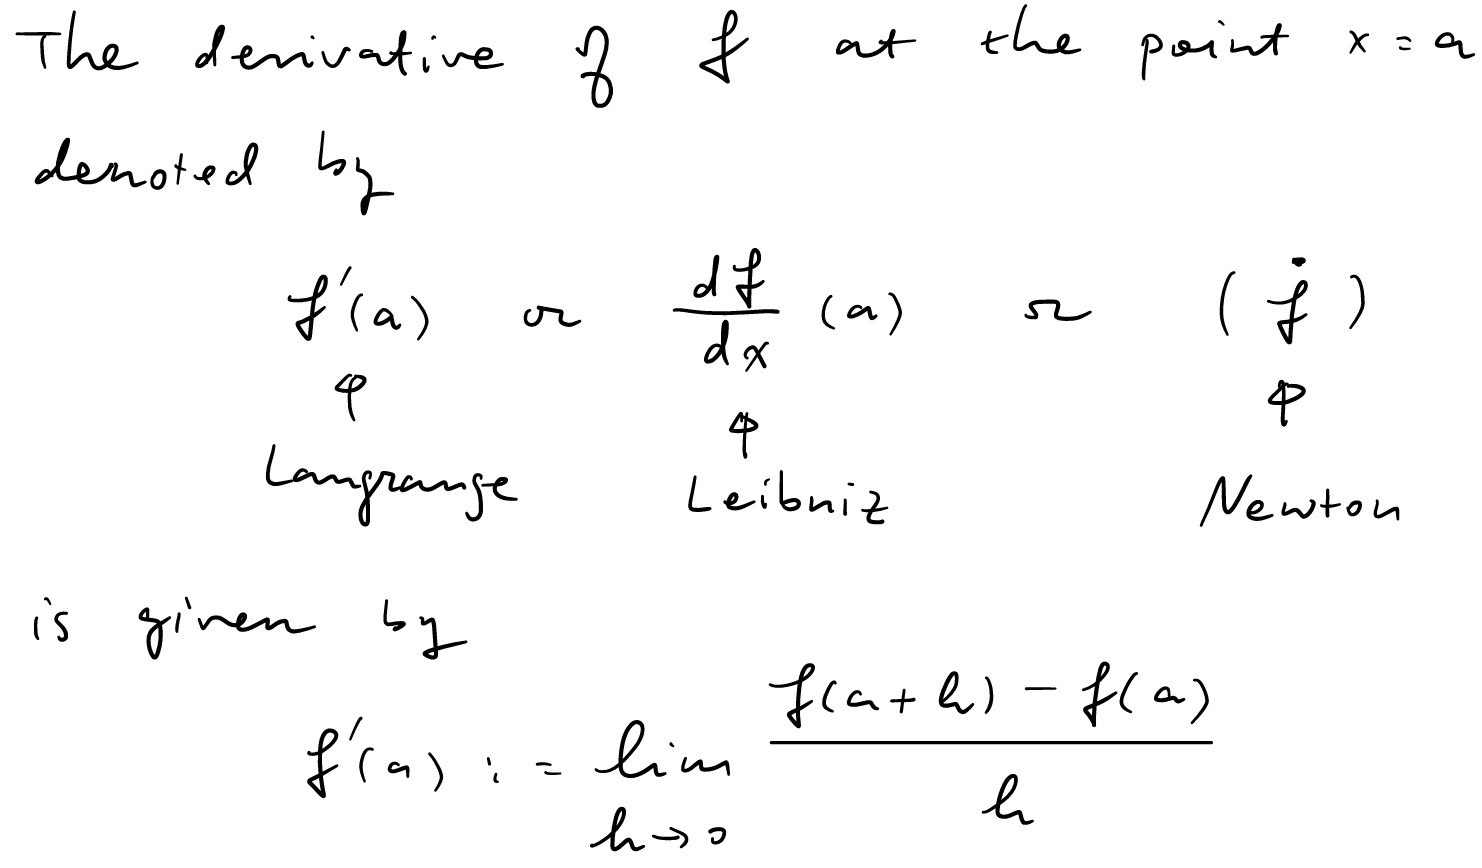 The derivative of f at the point x = a
denoted by
f'(a) or df/dx (a) or (ḟ)
↑ ↑ ↑
Langrange Leibniz Newton
is given by
f'(a) := lim h→0 (f(a+h) − f(a))/h